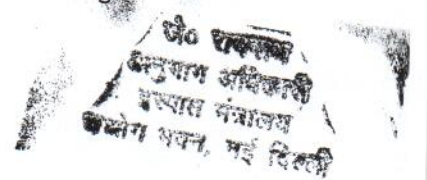 डी०
अनुभाग अधिकारी
इस्पात मंत्रालय
उद्योग भवन, नई दिल्ली